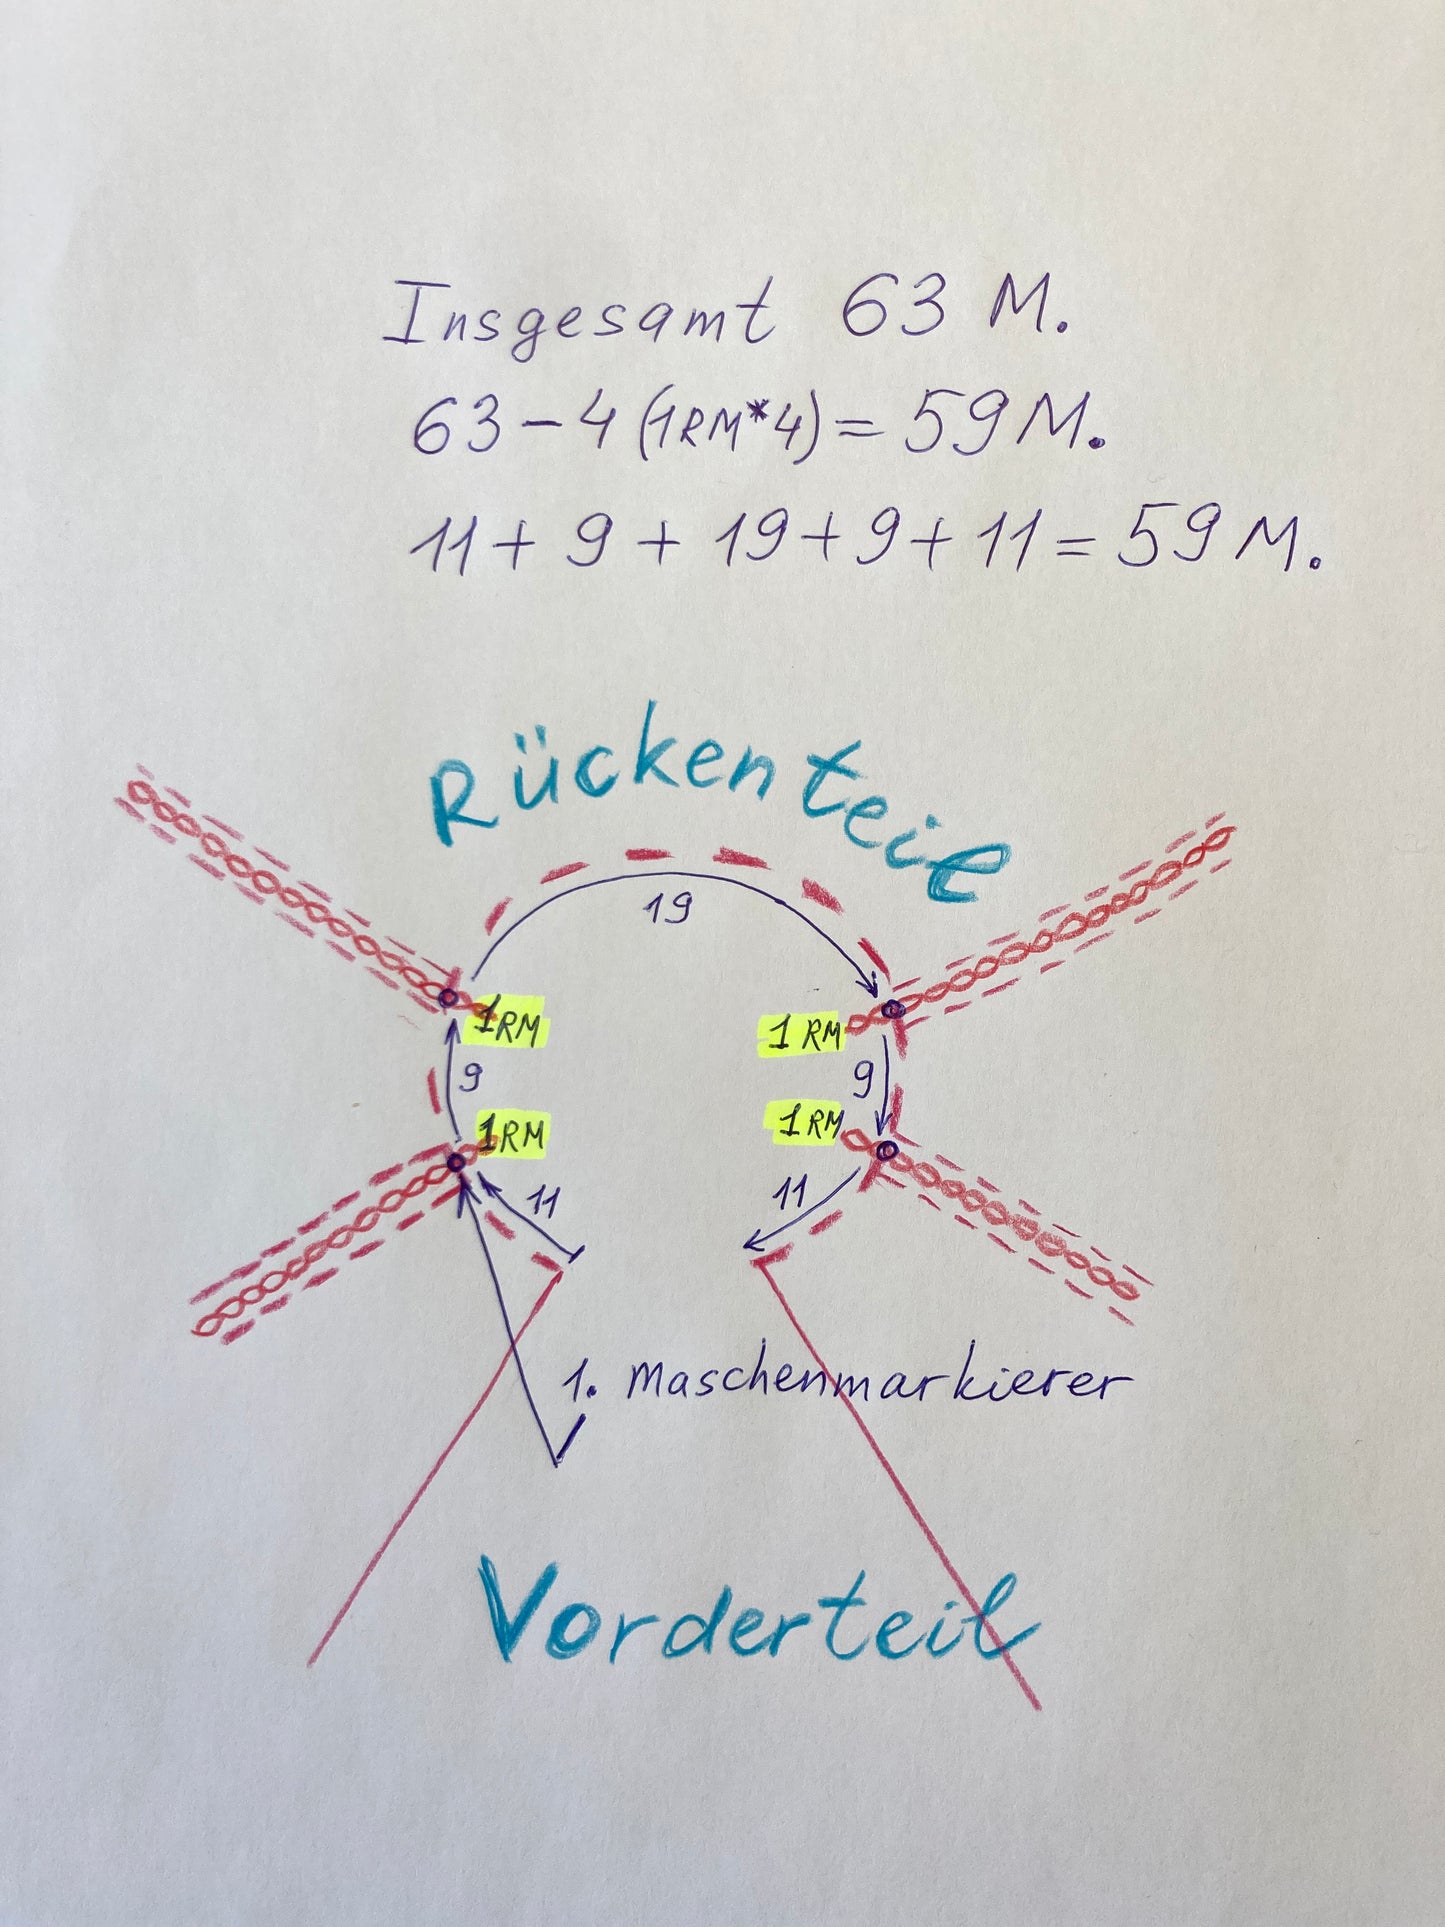 Insgesamt 63 M.
63 - 4 (1RM*4) = 59 M.
11 + 9 + 19 + 9 + 11 = 59 M.
Rückenteil
19
1RM
1 RM
9
9
1RM
1 RM
11
11
1. Maschenmarkierer
Vorderteil